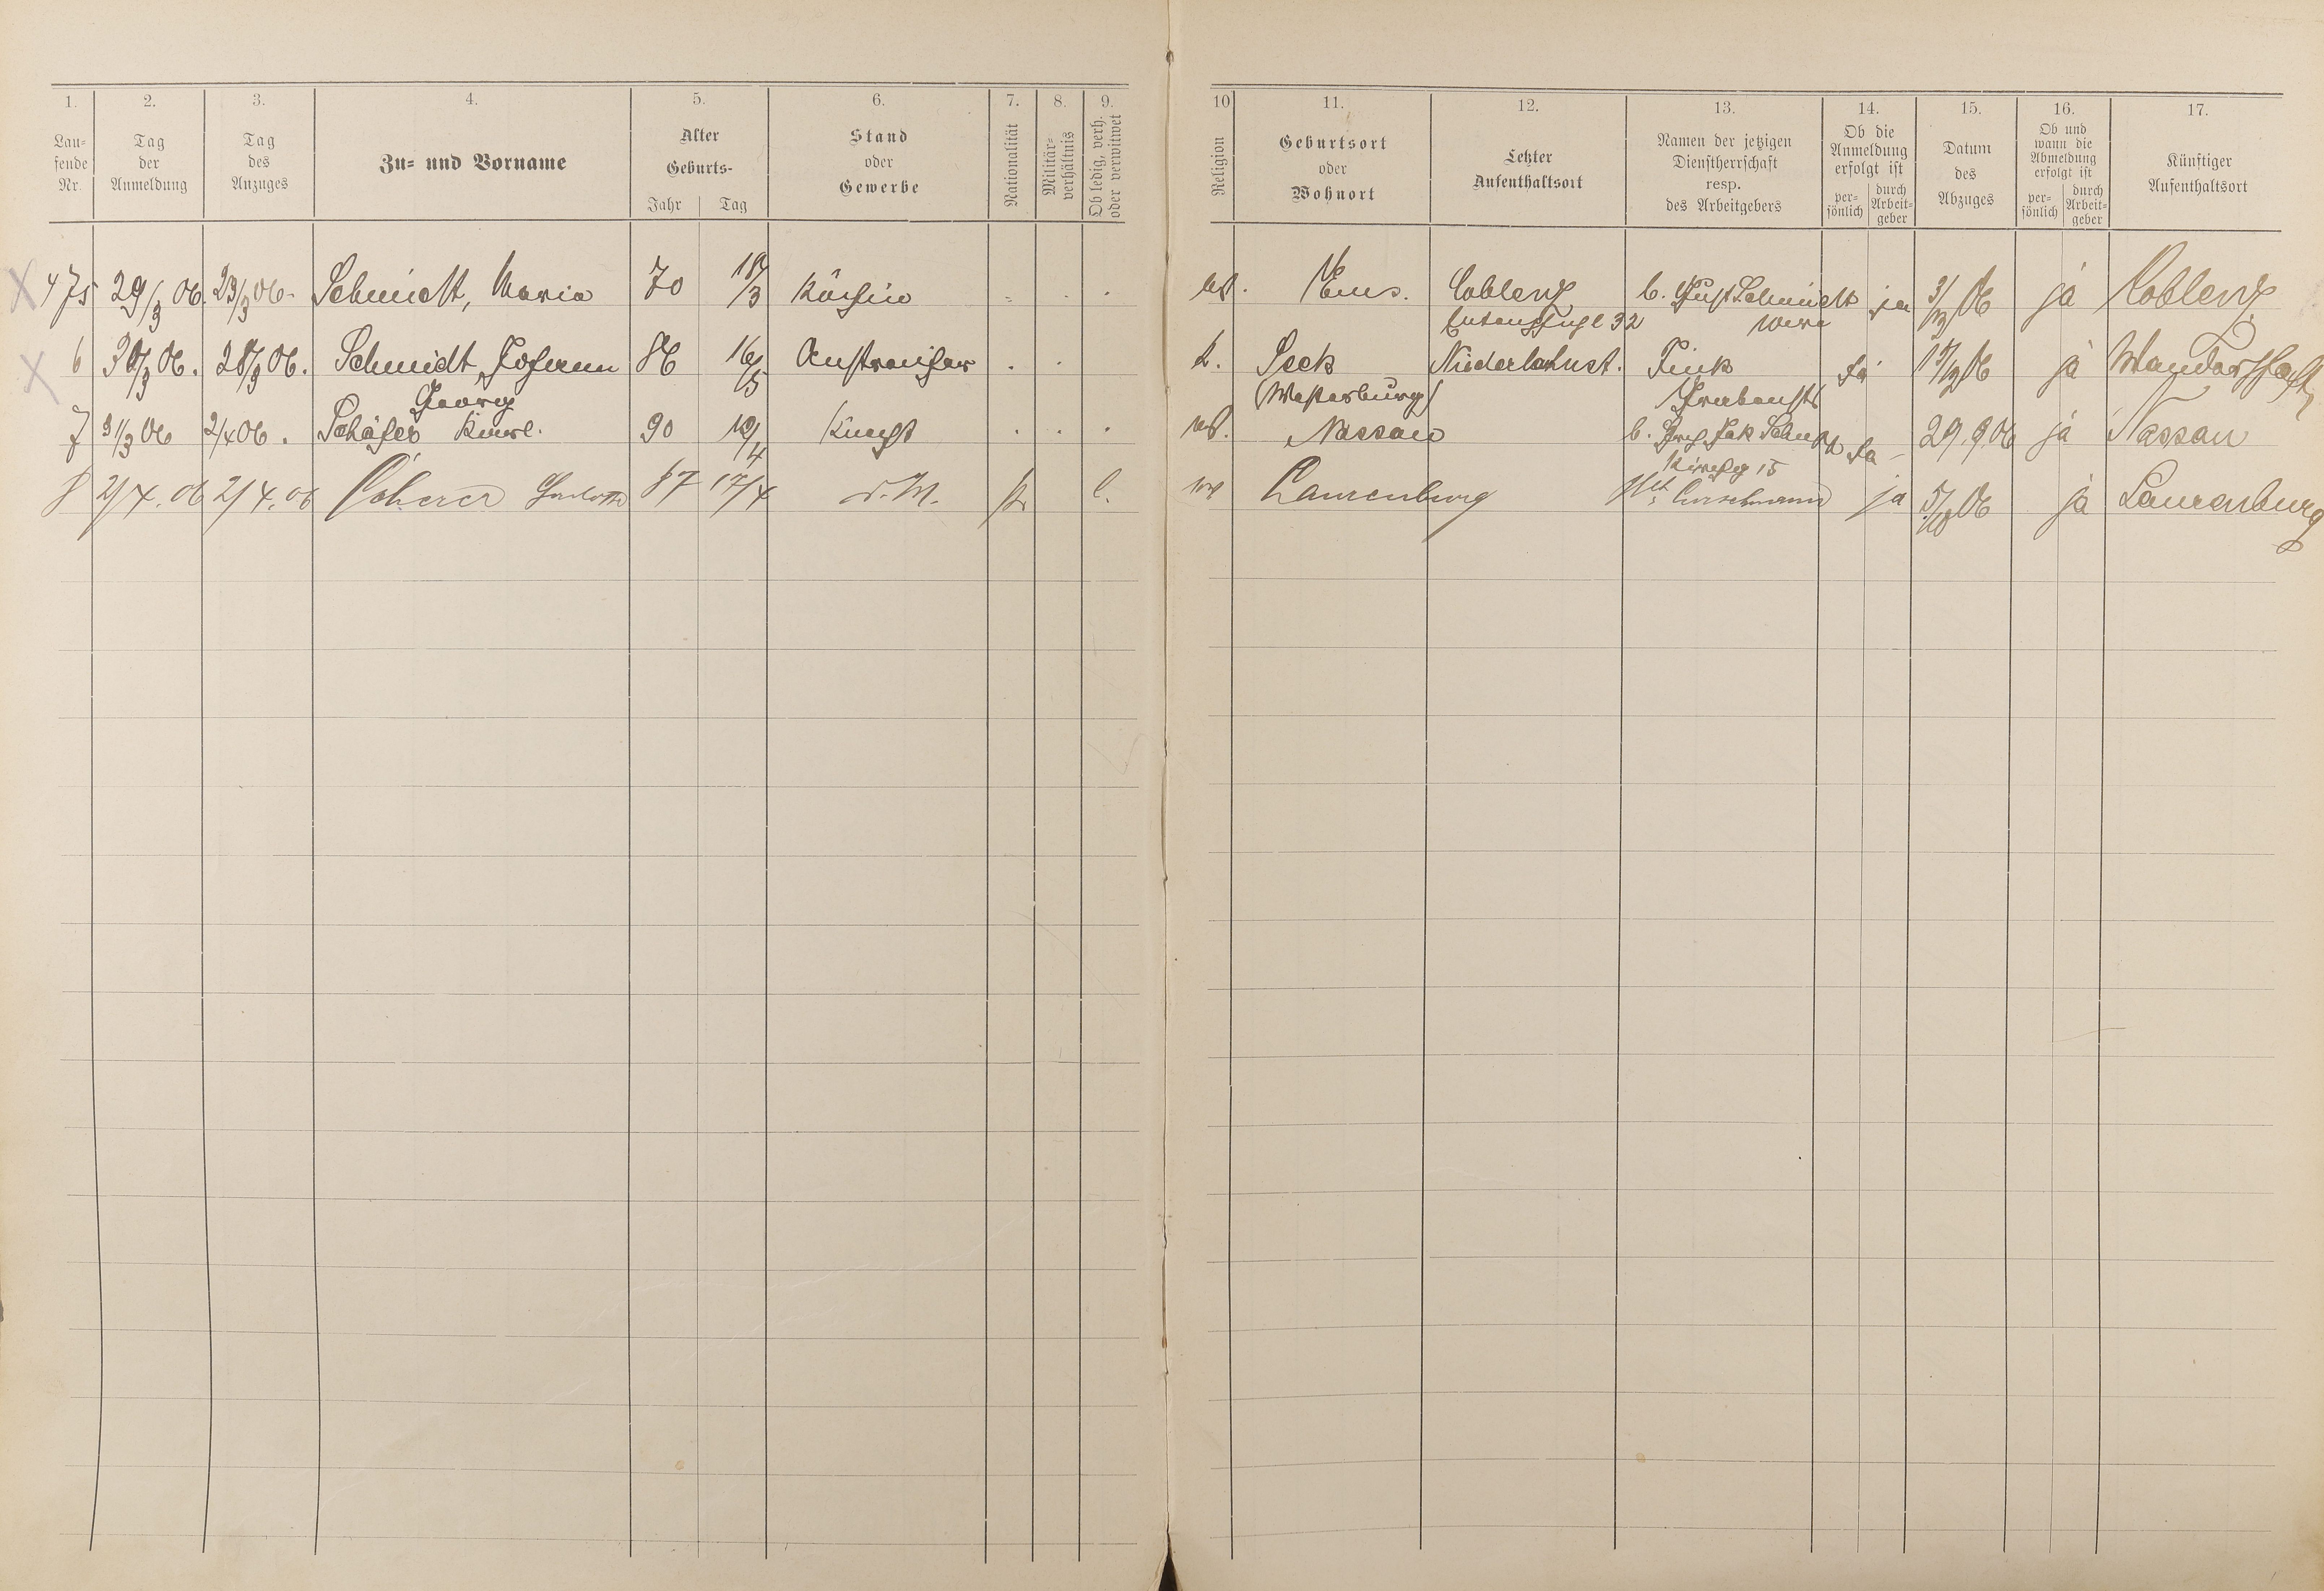 1. 2. 3. 4. 5. 6. 7. 8. 9. 10 11. 12. 13. 14. 15. 16. 17.
Lau-
fende
Nr.
Tag
der
Anmeldung
Tag
des
Anzuges
Zu- und Vorname
Alter
Geburts-
Jahr Tag
Stand
oder
Gewerbe
Nationalität
Militär-
verhältnis
Ob ledig, verh.
oder verwitwet
Religion
Geburtsort
oder
Wohnort
Letzter
Aufenthaltsort
Namen der jetzigen
Dienstherrschaft
resp.
des Arbeitgebers
Ob die
Anmeldung
erfolgt ist
per-
sönlich
durch
Arbeit-
geber
Datum
des
Abzuges
Ob und
wann die
Abmeldung
erfolgt ist
per-
sönlich
durch
Arbeit-
geber
Künftiger
Aufenthaltsort
475 29/3 06. 23/3 06- Schmidt, Maria 70 18/3 Köchin Ems. Coblenz b. Gust Schmidt ja 3/ 06 ja Coblenz
32 Wwe
6 30/3 06. 28/3 06. Schmidt, Johann 86 16/5 Anstreicher k. Seck Niederlahnst. Fink ja 06 ja Wanderschaft
Georg (Westerburg)
7 31/3 06 2/4 06. Schäfer 90 19/4 Knecht Nassau b. Jak ja 29.9.06 ja Nassau
15
8 2/4.06 2/4.06 Scherer 87 17/4 d. M. l. Laurenburg ja 5/ 06 ja Laurenburg